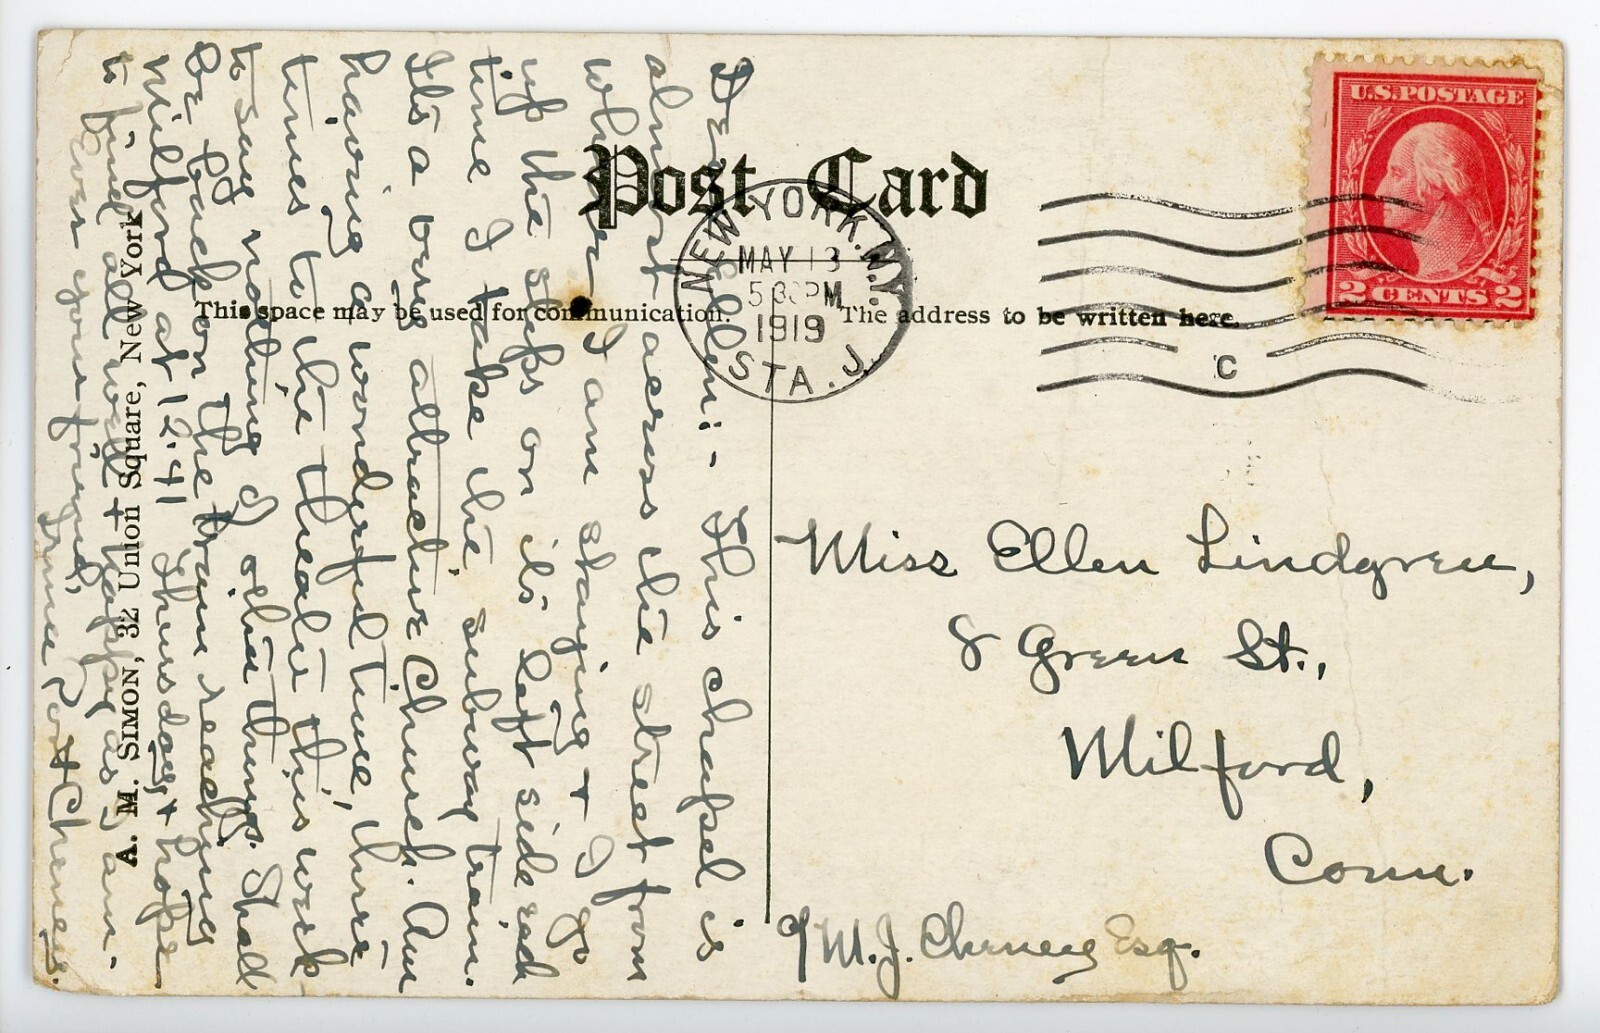 Post Card
This space may be used for communication.
The address to be written here.
U.S. POSTAGE
2 CENTS 2
NEW YORK, N.Y.
MAY 13
5 PM
1919
STA. J.
C
Dear Ellen:- This chapel is
almost across the street from
where I am staying + I go
up the steps on it's left side each
time I take the subway train.
It's a very attractive Church. Am
having a wonderful time, three
times to the theatre this week
to say nothing of other things. Shall
be back on the train reaching
Milford at 12.41 Thursday + hope
to find all well + happy as I am.
Ever your friend,
Cheney.
A. M. SIMON, 32 Union Square, New York
Miss Ellen Lindgren,
8 Green St.,
Milford,
Conn.
c/ M. J. Cheney Esq.